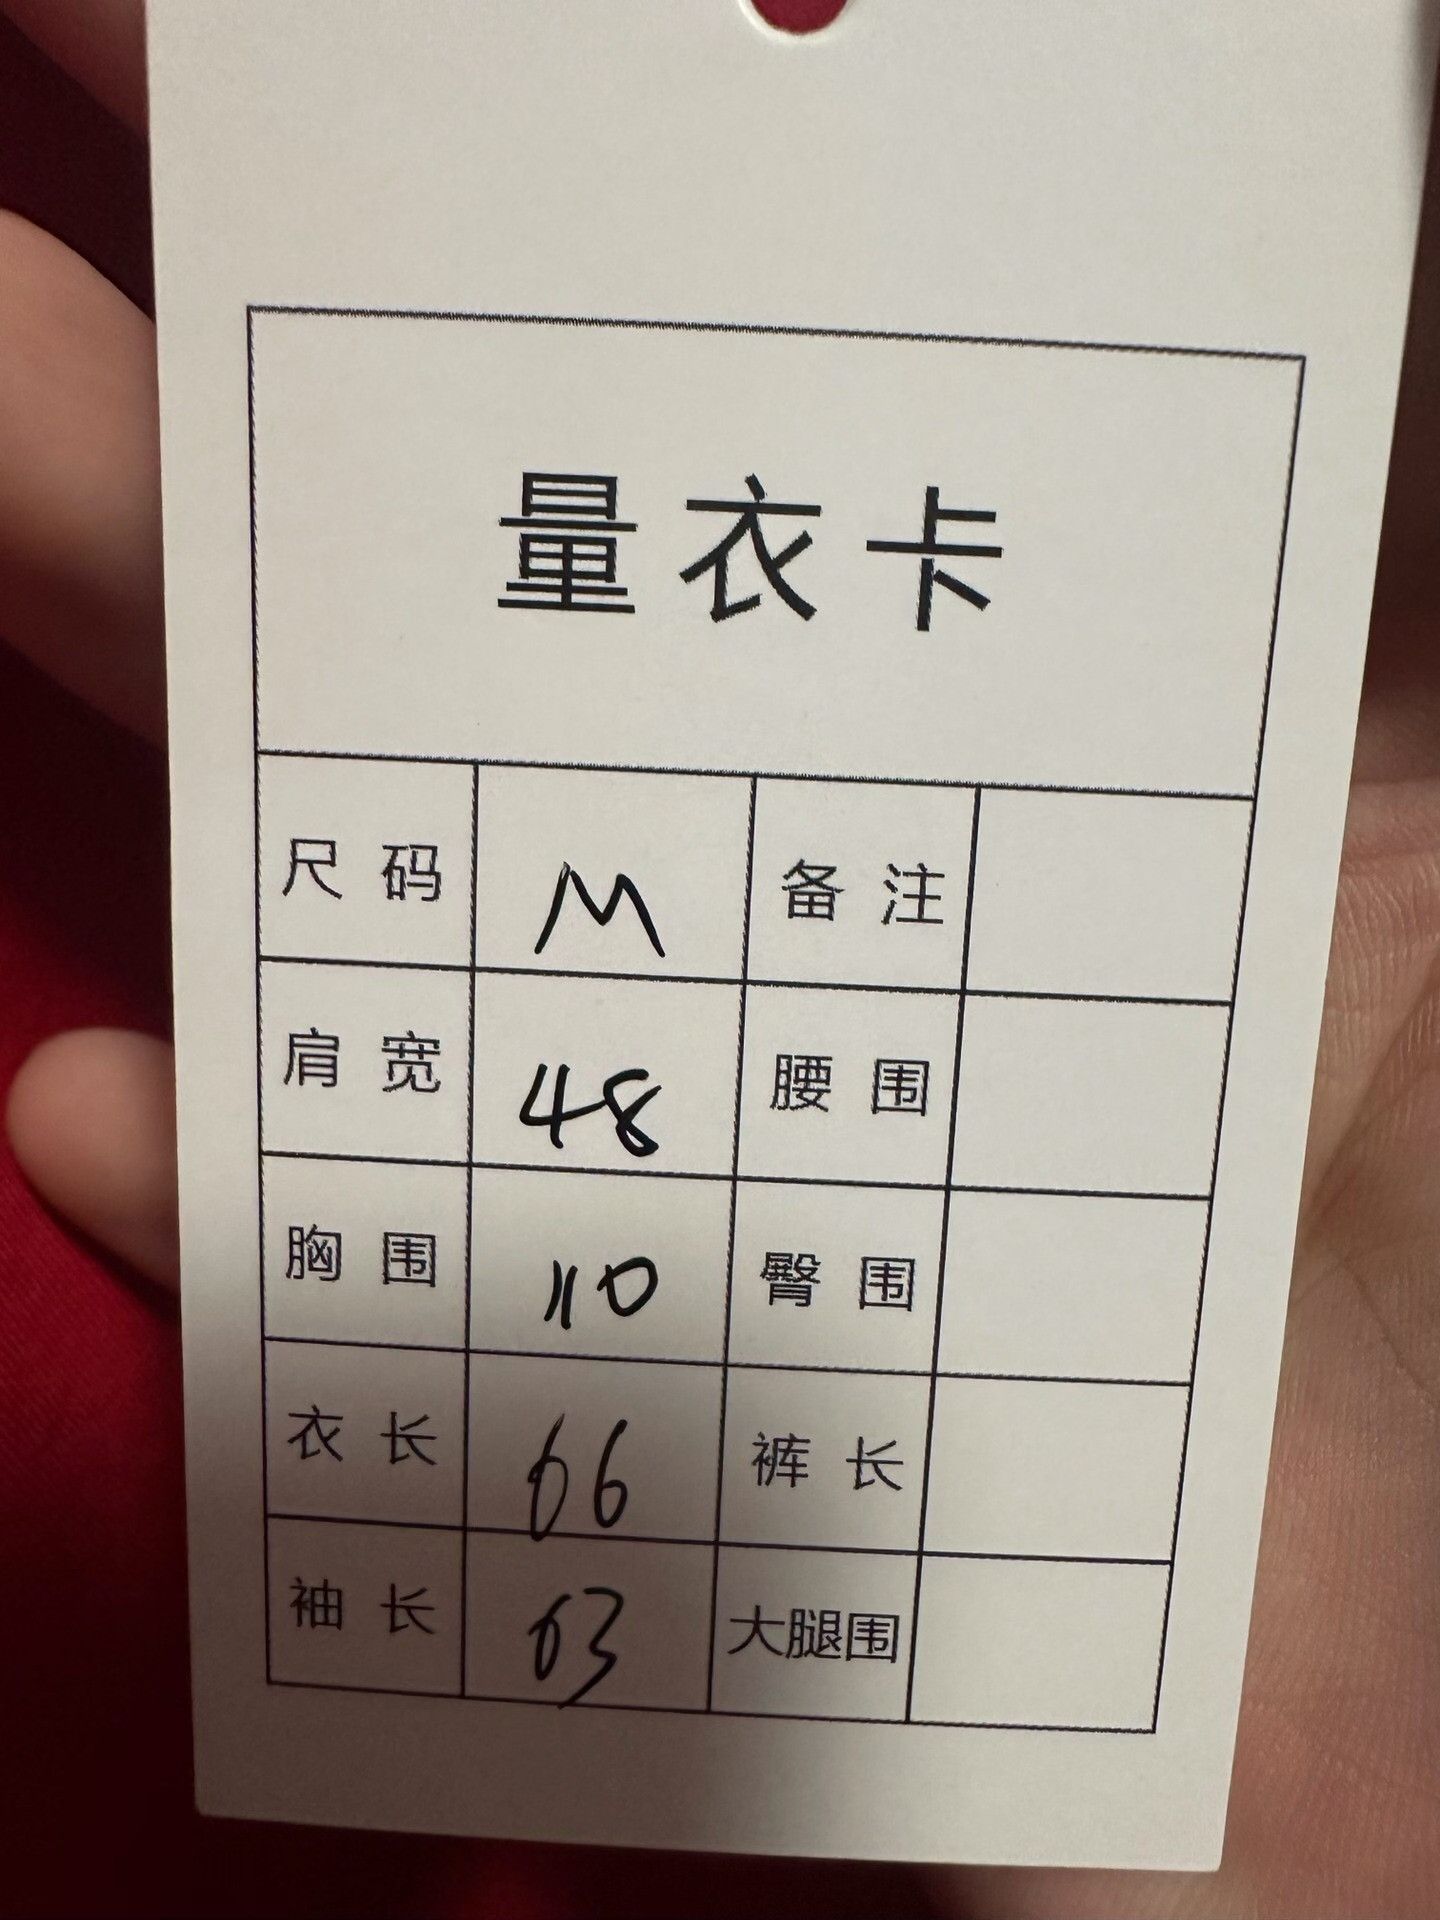 量衣卡
尺码 M 备注
肩宽 48 腰围
胸围 110 臀围
衣长 66 裤长
袖长 63 大腿围